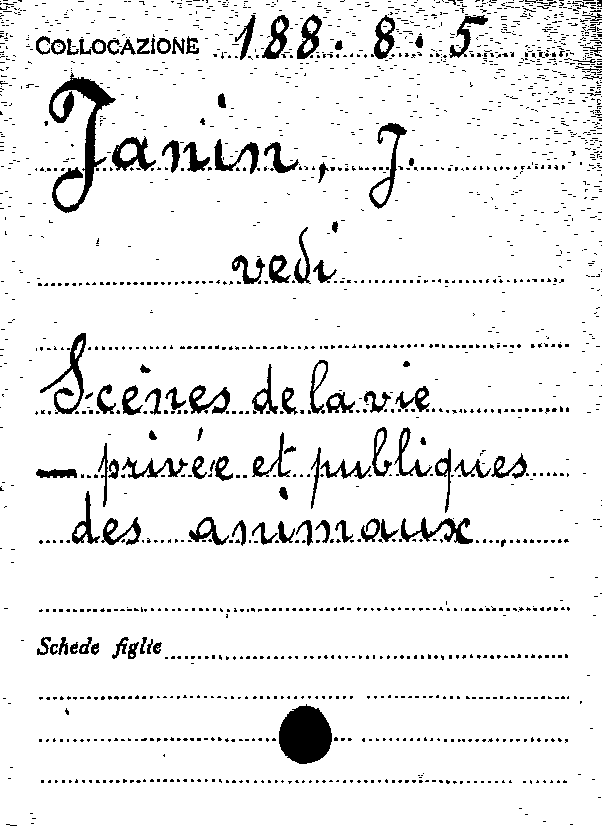 COLLOCAZIONE 188. 8. 5
Janin, J.
vedi
Scènes de la vie
— privée et publiques
des animaux.
Schede figlie